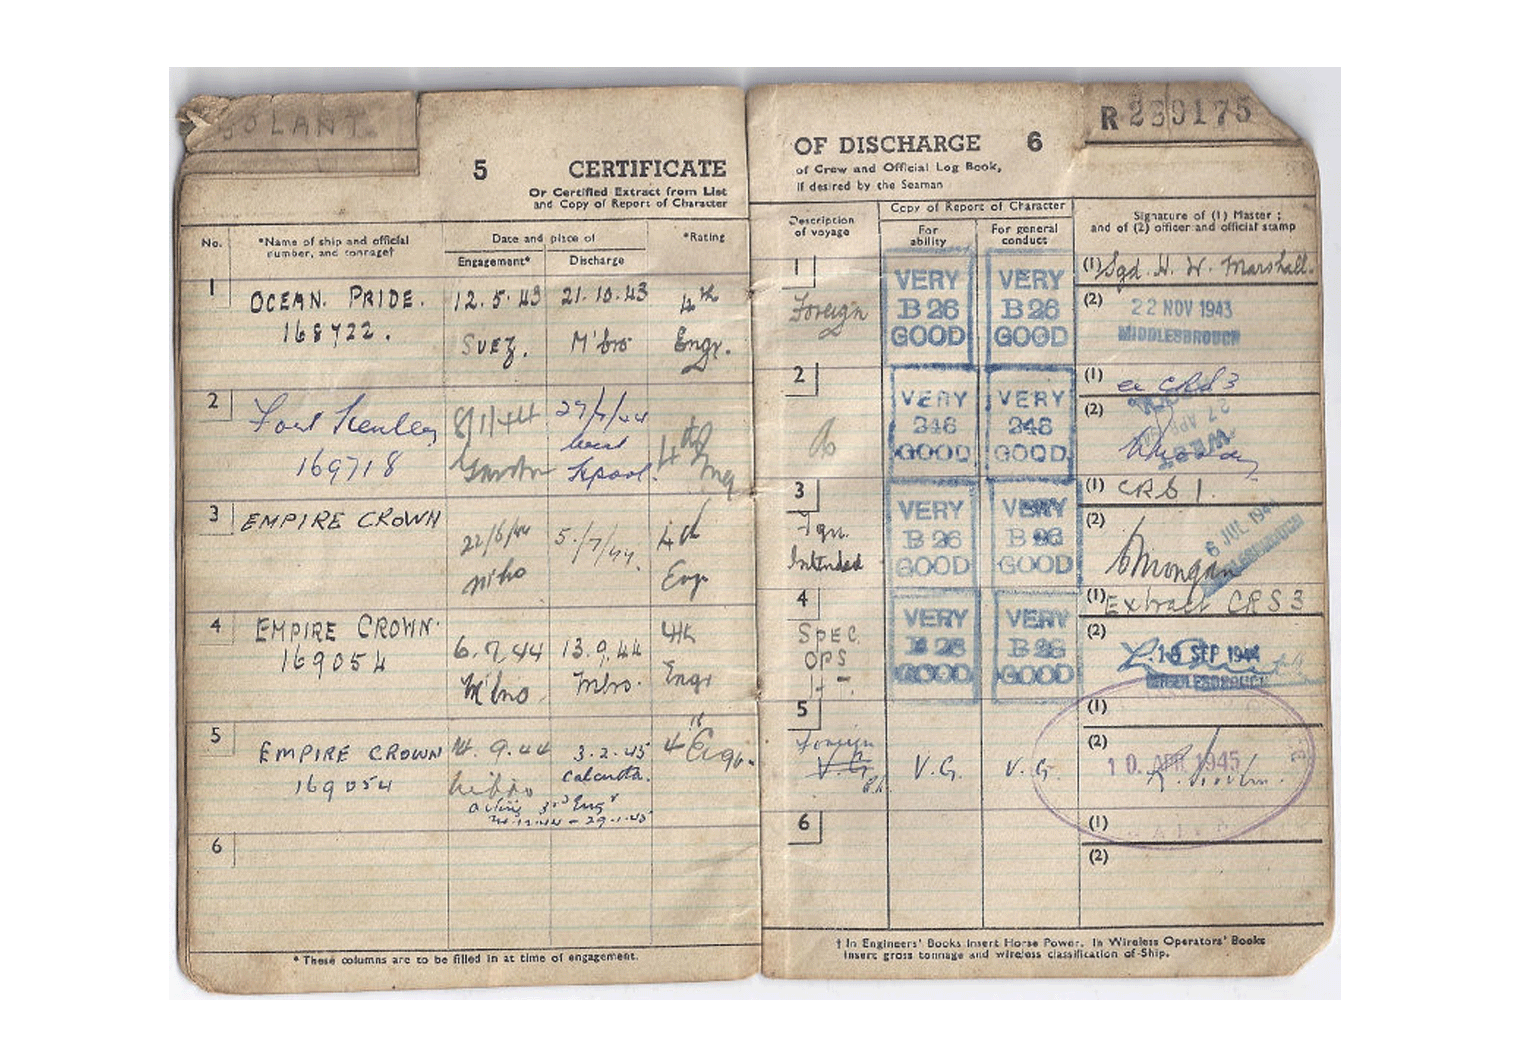 R 239175
5 CERTIFICATE
Or Certified Extract from List
and Copy of Report of Character
No.
*Name of ship and official
number, and tonnage†
Date and place of
Engagement* Discharge
*Rating
1
OCEAN. PRIDE. 12.5.43 21.10.43 4th
168722. SUEZ. M'bro Engr.
2
8/1/44 27/4/44
169718 Garston West Lpool. 4th Eng
3
EMPIRE CROWN 22/6/44 5/7/44. 4th
M'bro Engr
4
EMPIRE CROWN. 6.7.44 13.9.44 4th
169054 M'bro Mbro. Engr
5
EMPIRE CROWN 14.9.44 3.2.45 4th Engr.
169054 M'bro Calcutta.
acting 3rd Engr
29.1.45
6
* These columns are to be filled in at time of engagement.
OF DISCHARGE 6
of Crew and Official Log Book,
if desired by the Seaman
Description
of voyage
Copy of Report of Character
For
ability
For general
conduct
Signature of (1) Master ;
and of (2) officer and official stamp
1
Foreign
VERY
B 26
GOOD
VERY
B 26
GOOD
(1) Sgd. H. W. Marshall.
(2) 22 NOV 1943
MIDDLESBROUGH
2
VERY
246
GOOD
VERY
246
GOOD
(1) CRS 3
(2) 27 APR
3
Fgn.
Intended
VERY
B 26
GOOD
VERY
B 26
GOOD
(1) CRS 1.
(2) 6 JUL 1944
MIDDLESBROUGH
4
SPEC
OPS
H.T.
VERY
B 26
GOOD
VERY
B 26
GOOD
(1) Extract CRS 3
(2) SEP 1944
MIDDLESBROUGH
5
Foreign
V.G.
V.G. V.G.
(1)
(2) 10. APR 1945
6
(1)
(2)
† In Engineers' Books insert Horse Power. In Wireless Operators' Books
insert gross tonnage and wireless classification of Ship.